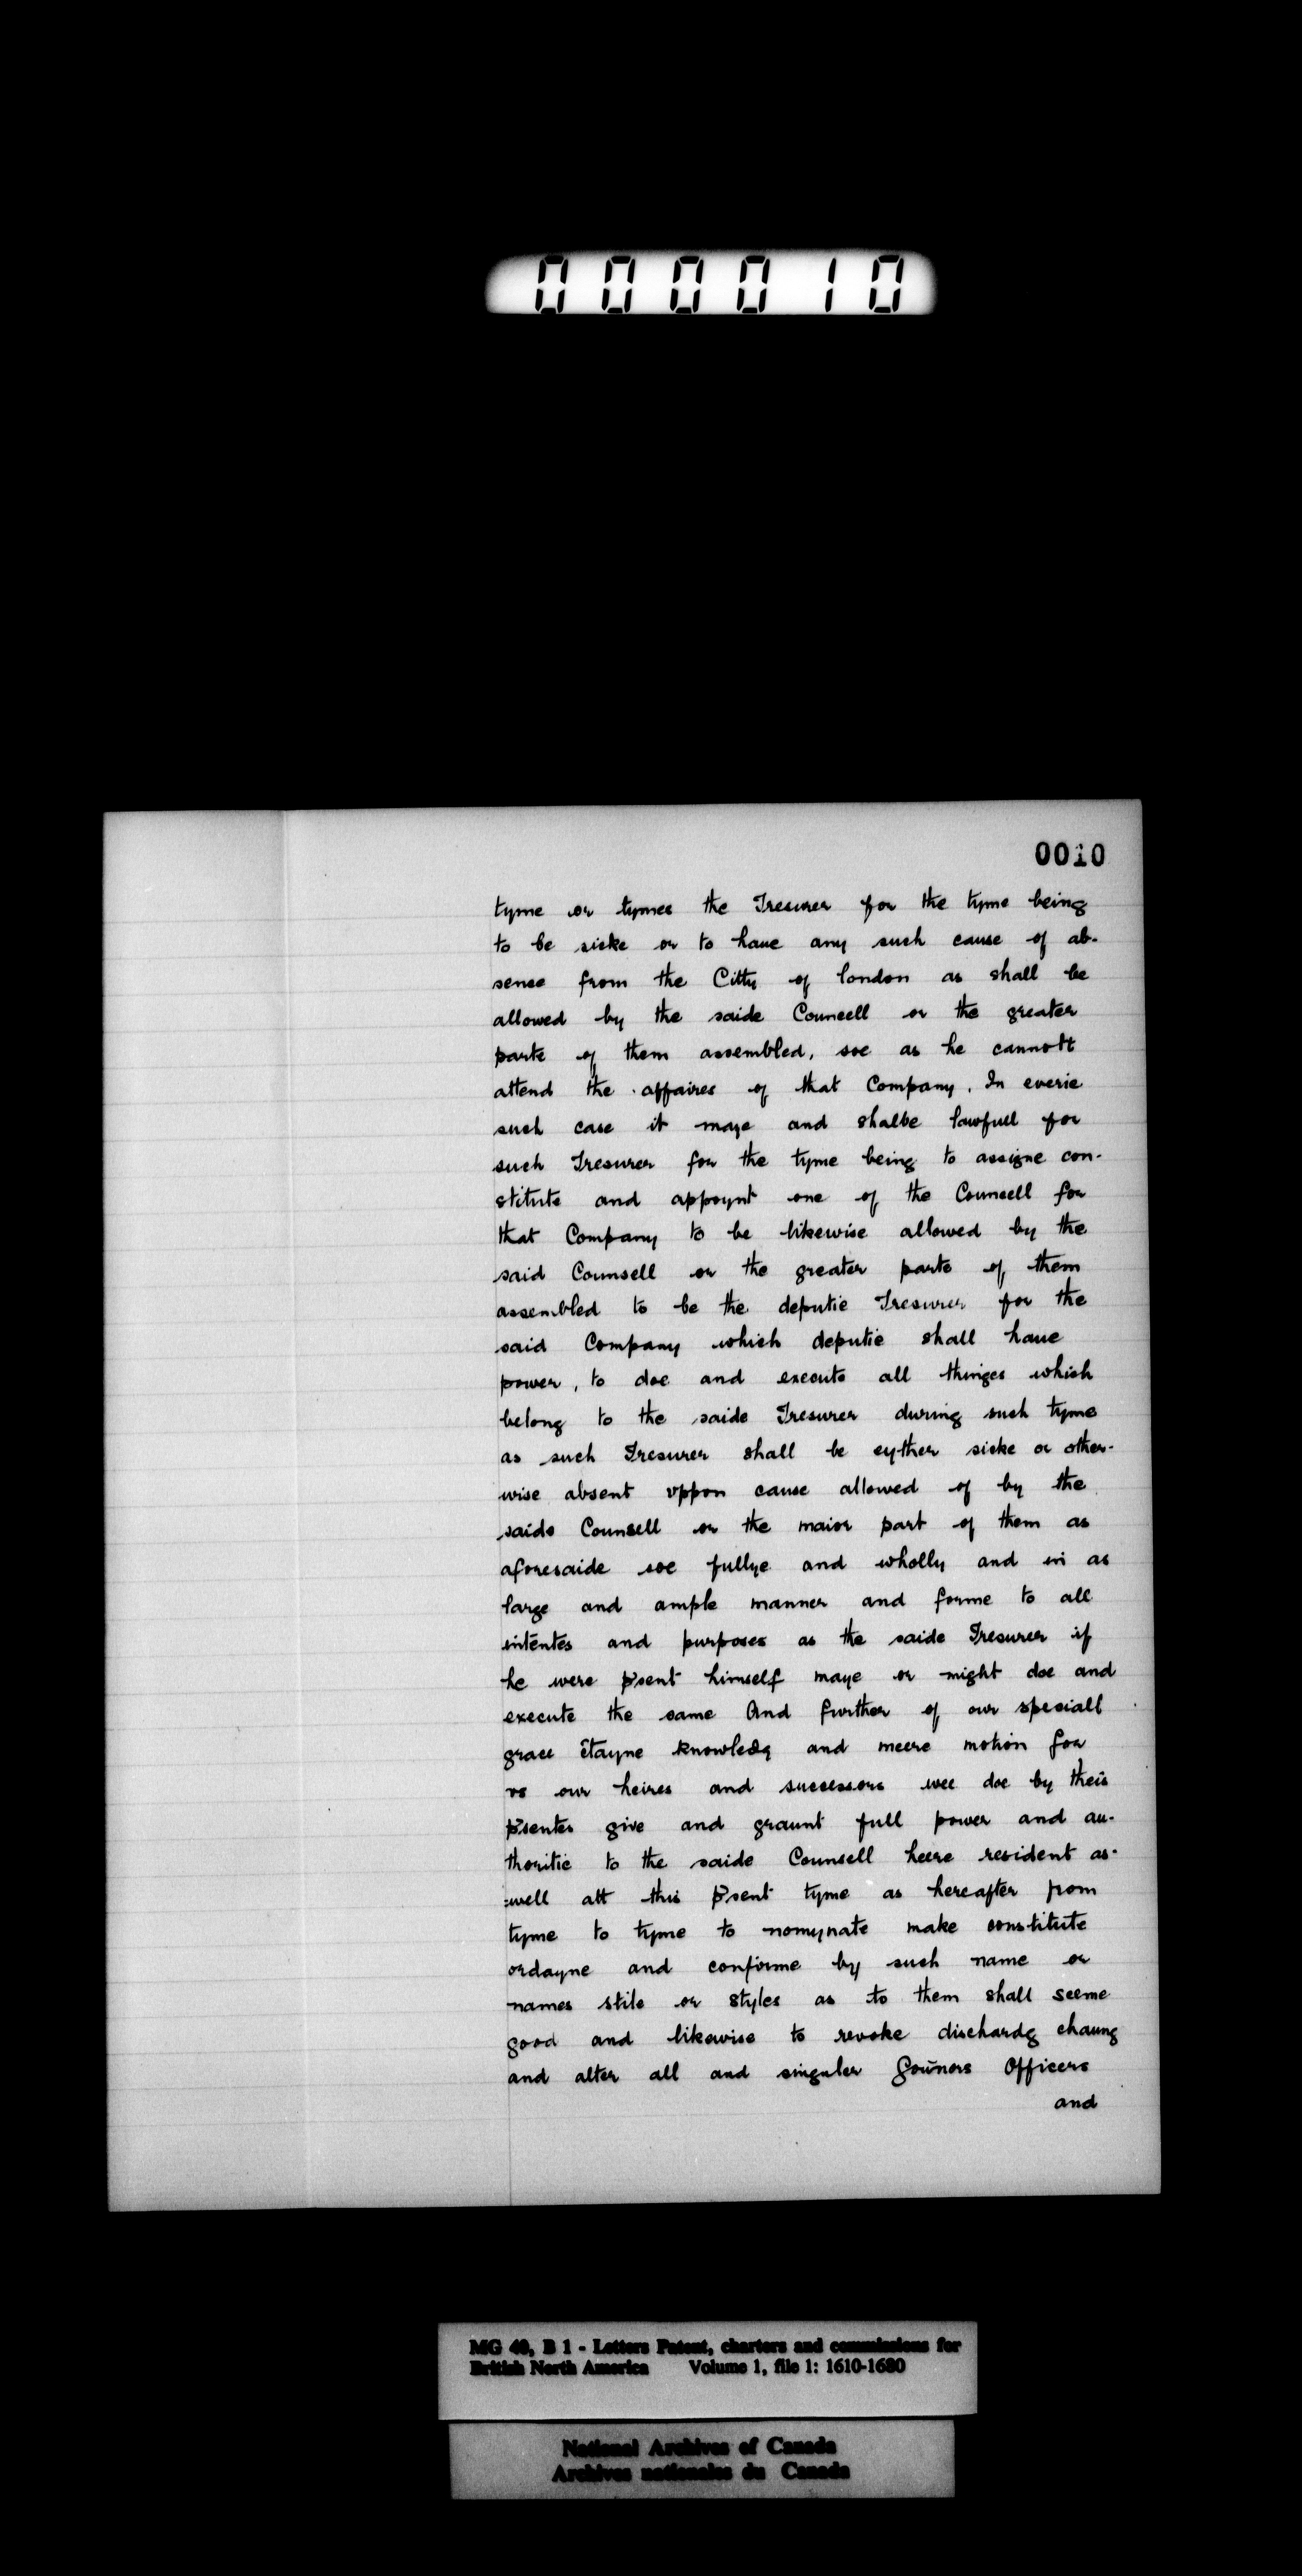 000010
0010
tyme or tymes the Tresurer for the tyme being
to be sicke or to haue any such cause of ab-
sence from the Citty of london as shall be
allowed by the saide Councell or the greater
parte of them assembled, soe as he cannott
attend the affaires of that Company. In everie
such case it maye and shalbe lawfull for
such Tresurer for the tyme being to assigne con-
stitute and appoynt one of the Councell for
that Company to be likewise allowed by the
said Counsell or the greater parte of them
assembled to be the deputie Tresurer for the
said Company which deputie shall haue
power, to doe and execute all thinges which
belong to the saide Tresurer during such tyme
as such Tresurer shall be eyther sicke or other-
wise absent vppon cause allowed of by the
saide Counsell or the maior part of them as
aforesaide soe fullye and wholly and in as
large and ample manner and forme to all
intentes and purposes as the saide Tresurer if
he were p̃sent himself maye or might doe and
execute the same And further of our speciall
grace c̃tayne knowledg and meere motion for
vs our heires and successors wee doe by theis
p̃sentes give and graunt full power and au-
thoritie to the saide Counsell heere resident as-
=well att this p̃sent tyme as hereafter from
tyme to tyme to nomynate make constitute
ordayne and confirme by such name or
names stile or styles as to them shall seeme
good and likewise to revoke dischardg chaung
and alter all and singuler Gou̅nors Officers
and
MG 40, B 1 - Letters Patent, charters and commissions for
British North America Volume 1, file 1: 1610-1680
National Archives of Canada
Archives nationales du Canada